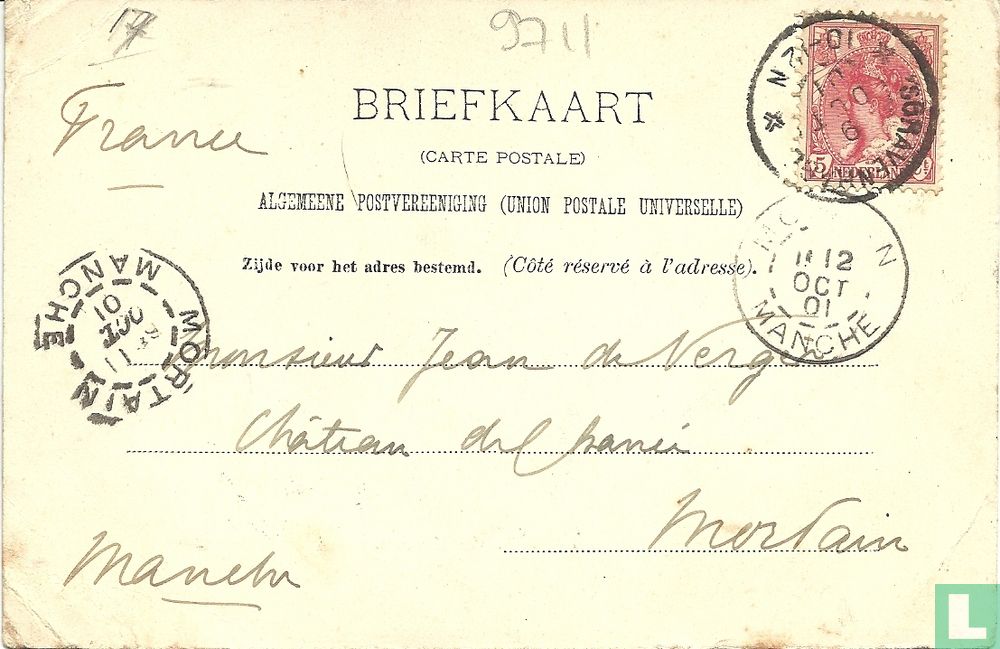 17
9711
France
BRIEFKAART
(CARTE POSTALE)
ALGEMEENE POSTVEREENIGING (UNION POSTALE UNIVERSELLE)
Zijde voor het adres bestemd. (Côté réservé à l'adresse).
10-12 N
5 NEDERLAND
12
OCT
01
MANCHE
MORTAIN
11
OCT
01
MANCHE
Monsieur Jean de
Château de
Mortain
Manche
L